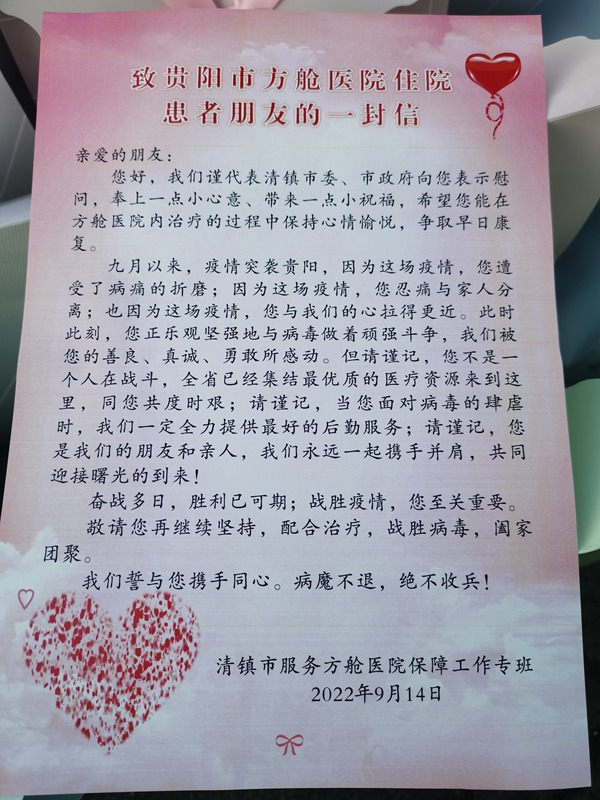 致贵阳市方舱医院住院
患者朋友的一封信
亲爱的朋友：
您好，我们谨代表清镇市委、市政府向您表示慰
问，奉上一点小心意、带来一点小祝福，希望您能在
方舱医院内治疗的过程中保持心情愉悦，争取早日康
复。
九月以来，疫情突袭贵阳，因为这场疫情，您遭
受了病痛的折磨；因为这场疫情，您忍痛与家人分
离；也因为这场疫情，您与我们的心拉得更近。此时
此刻，您正乐观坚强地与病毒做着顽强斗争，我们被
您的善良、真诚、勇敢所感动。但请谨记，您不是一
个人在战斗，全省已经集结最优质的医疗资源来到这
里，同您共度时艰；请谨记，当您面对病毒的肆虐
时，我们一定全力提供最好的后勤服务；请谨记，您
是我们的朋友和亲人，我们永远一起携手并肩，共同
迎接曙光的到来！
奋战多日，胜利已可期；战胜疫情，您至关重要。
敬请您再继续坚持，配合治疗，战胜病毒，阖家
团聚。
我们誓与您携手同心。病魔不退，绝不收兵！
清镇市服务方舱医院保障工作专班
2022年9月14日